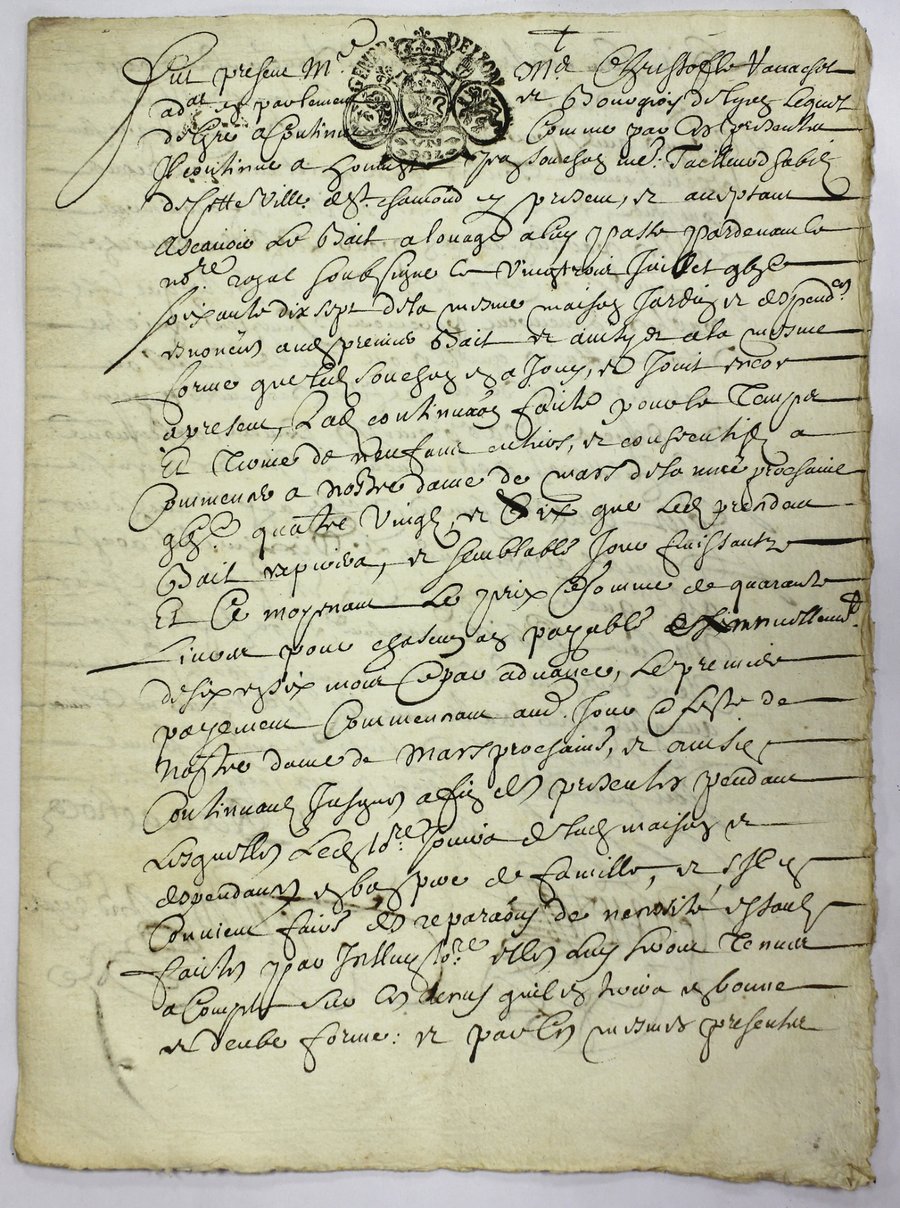 GENER DE LYON
UN SOL
Fut present Me Md Christofle
adat en parlement et Bourgeois de Lyon Lequel
de gré a Continué Comme par Ces presentes
Il continue a honneste Souchon me Tailleur d'habit
de Cette Ville de St chamond y present, et acceptant
Ascavoir Le Bail a louage a luy passé pardevant le
nore Royal soubsigné le Vingt trois Juillet gbic
soixante dix sept de la mesme maison Jardin et despendces
enoncés aud premier Bail et ainsy et a la mesme
forme que led Souchon en a Jouy, et Jouit encor
a present, Lad continuaon faite pour le Temps
Et Terme de neuf ans entiers, et consecutifs a
Commencer a nostre dame de mars de la année prochaine
gbic quatre Vingt, et six que Led pendant
Bail expirera, et semblable Jour finissants
Et Ce moyenant Le prix et somme de quarante
Livres pour chascun an payable
de six en six mois et par advance, Le premier
payement Commencant aud Jour et feste de
nostre dame de Mars prochaine, et ainsi
Continuant Jusques a fin des presentes pendant
Lesquelles Led Jouira de lad maison et
despendances en bon pere de famille, et s'il y
Convient faire des reparaons de necessité estant
faites par Icelluy elles luy seront Tenues
a Compte sur les qu'il en en bonne
et deube forme: et par Ces mesmes presentes